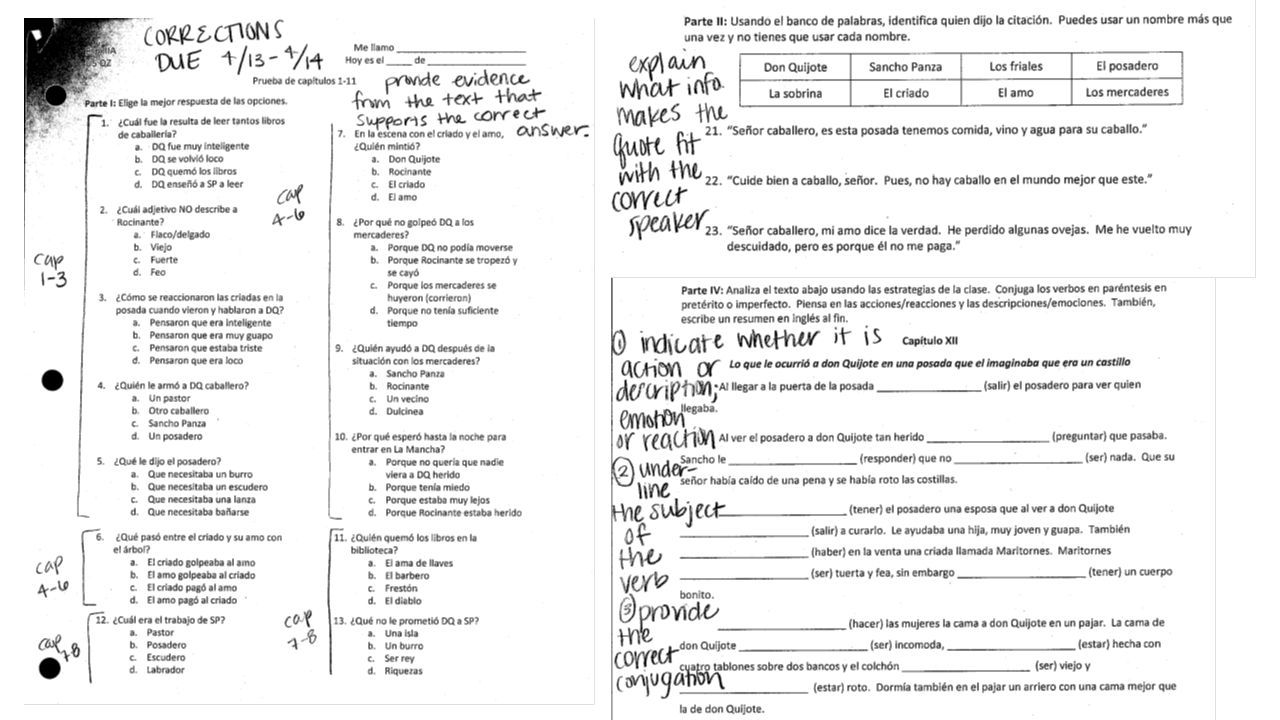 CORRECTIONS
DUE 4/13 - 4/14
Me llamo
Hoy es el ____ de
Prueba de capítulos 1-11
provide evidence
from the text that
supports the correct
answer.
Parte I: Elige la mejor respuesta de las opciones.
cap
1-3
1. ¿Cuál fue la resulta de leer tantos libros
de caballería?
a. DQ fue muy inteligente
b. DQ se volvió loco
c. DQ quemó los libros
d. DQ enseñó a SP a leer
2. ¿Cuál adjetivo NO describe a
Rocinante?
a. Flaco/delgado
b. Viejo
c. Fuerte
d. Feo
3. ¿Cómo se reaccionaron las criadas en la
posada cuando vieron y hablaron a DQ?
a. Pensaron que era inteligente
b. Pensaron que era muy guapo
c. Pensaron que estaba triste
d. Pensaron que era loco
4. ¿Quién le armó a DQ caballero?
a. Un pastor
b. Otro caballero
c. Sancho Panza
d. Un posadero
5. ¿Qué le dijo el posadero?
a. Que necesitaba un burro
b. Que necesitaba un escudero
c. Que necesitaba una lanza
d. Que necesitaba bañarse
cap
4-6
6. ¿Qué pasó entre el criado y su amo con
el árbol?
a. El criado golpeaba al amo
b. El amo golpeaba al criado
c. El criado pagó al amo
d. El amo pagó al criado
cap
7-8
12. ¿Cuál era el trabajo de SP?
a. Pastor
b. Posadero
c. Escudero
d. Labrador
cap
4-6
7. En la escena con el criado y el amo,
¿Quién mintió?
a. Don Quijote
b. Rocinante
c. El criado
d. El amo
8. ¿Por qué no golpeó DQ a los
mercaderes?
a. Porque DQ no podía moverse
b. Porque Rocinante se tropezó y
se cayó
c. Porque los mercaderes se
huyeron (corrieron)
d. Porque no tenía suficiente
tiempo
9. ¿Quién ayudó a DQ después de la
situación con los mercaderes?
a. Sancho Panza
b. Rocinante
c. Un vecino
d. Dulcinea
10. ¿Por qué esperó hasta la noche para
entrar en La Mancha?
a. Porque no quería que nadie
viera a DQ herido
b. Porque tenía miedo
c. Porque estaba muy lejos
d. Porque Rocinante estaba herido
11. ¿Quién quemó los libros en la
biblioteca?
a. El ama de llaves
b. El barbero
c. Frestón
d. El diablo
cap
7-8
13. ¿Qué no le prometió DQ a SP?
a. Una isla
b. Un burro
c. Ser rey
d. Riquezas
Parte II: Usando el banco de palabras, identifica quien dijo la citación. Puedes usar un nombre más que
una vez y no tienes que usar cada nombre.
explain
what info
makes the
quote fit
with the
correct
speaker
Don Quijote Sancho Panza Los friales El posadero
La sobrina El criado El amo Los mercaderes
21. “Señor caballero, es esta posada tenemos comida, vino y agua para su caballo.”
22. “Cuide bien a caballo, señor. Pues, no hay caballo en el mundo mejor que este.”
23. “Señor caballero, mi amo dice la verdad. He perdido algunas ovejas. Me he vuelto muy
descuidado, pero es porque él no me paga.”
Parte IV: Analiza el texto abajo usando las estrategias de la clase. Conjuga los verbos en paréntesis en
pretérito o imperfecto. Piensa en las acciones/reacciones y las descripciones/emociones. También,
escribe un resumen en inglés al fin.
① indicate whether it is
action or
description;
emotion
or reaction
② under-
line
the subject
of
the
verb
③ provide
the
correct
conjugation
Capítulo XII
Lo que le ocurrió a don Quijote en una posada que el imaginaba que era un castillo
Al llegar a la puerta de la posada ____ (salir) el posadero para ver quien
llegaba.
Al ver el posadero a don Quijote tan herido ____ (preguntar) que pasaba.
Sancho le ____ (responder) que no ____ (ser) nada. Que su
señor había caído de una pena y se había roto las costillas.
____ (tener) el posadero una esposa que al ver a don Quijote
____ (salir) a curarlo. Le ayudaba una hija, muy joven y guapa. También
____ (haber) en la venta una criada llamada Maritornes. Maritornes
____ (ser) tuerta y fea, sin embargo ____ (tener) un cuerpo
bonito.
____ (hacer) las mujeres la cama a don Quijote en un pajar. La cama de
don Quijote ____ (ser) incomoda, ____ (estar) hecha con
cuatro tablones sobre dos bancos y el colchón ____ (ser) viejo y
____ (estar) roto. Dormía también en el pajar un arriero con una cama mejor que
la de don Quijote.